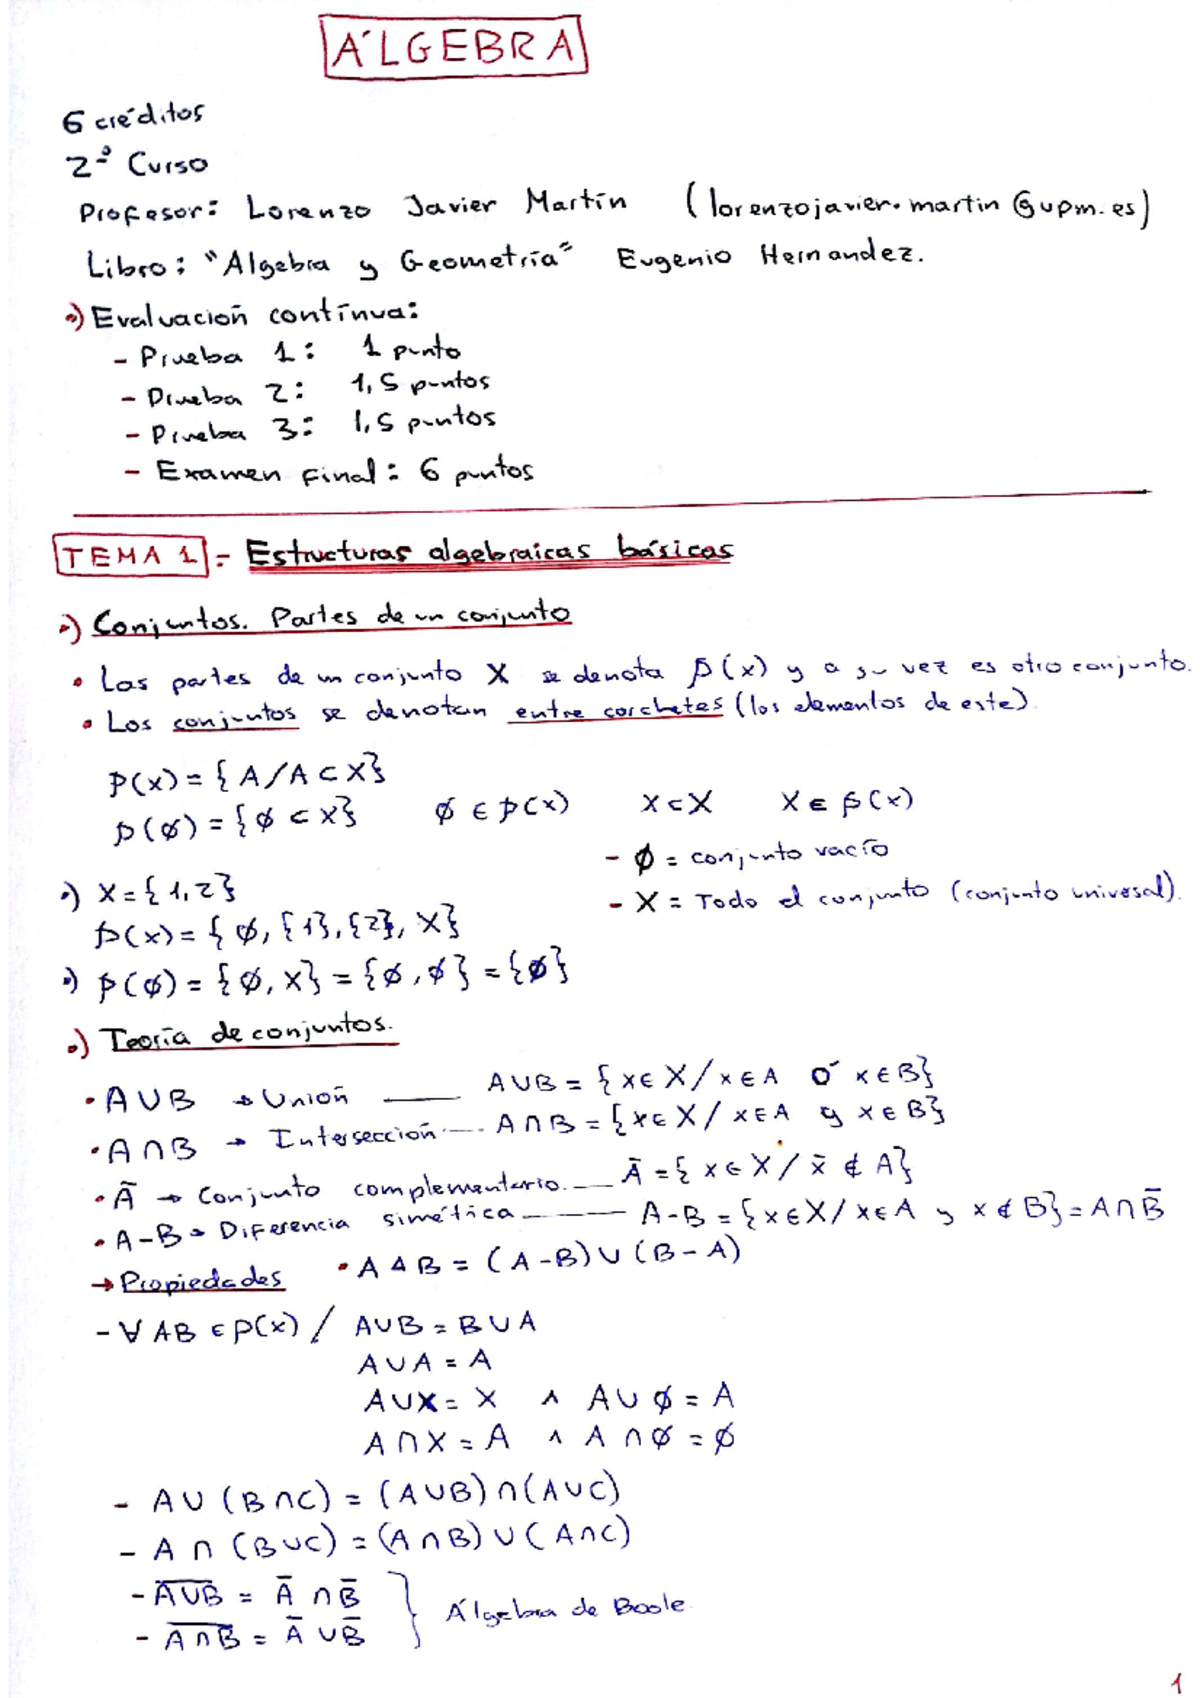 ÁLGEBRA
6 créditos
2º Curso
Profesor: Lorenzo Javier Martín (lorenzojavier.martin@upm.es)
Libro: "Algebra y Geometría" Eugenio Hernandez.
•) Evaluación contínua:
- Prueba 1: 1 punto
- Prueba 2: 1,5 puntos
- Prueba 3: 1,5 puntos
- Examen Final: 6 puntos
TEMA 1.- Estructuras algebraicas básicas
•) Conjuntos. Partes de un conjunto
• Las partes de un conjunto X se denota P(x) y a su vez es otro conjunto.
• Los conjuntos se denotan entre corchetes (los elementos de este).
P(x) = { A/A ⊂ X}
P(∅) = {∅ ⊂ X} ∅ ∈ P(x) X ⊂ X X ∈ P(x)
- ∅ = conjunto vacío
•) X = {1,2}
- X = Todo el conjunto (conjunto univesal).
P(x) = { ∅, {1}, {2}, X}
•) P(∅) = {∅, X} = {∅, ∅} = {∅}
•) Teoría de conjuntos.
• A∪B → Unión — A∪B = { x∈X / x∈A ó x∈B}
• A∩B → Intersección — A∩B = {x∈X / x∈A y x∈B}
• Ā → Conjunto complementario. — Ā = { x∈X / x̄ ∉ A}
• A-B → Diferencia simética — A-B = {x∈X / x∈A y x∉B} = A∩B̄
→ Propiedades • A Δ B = (A-B) ∪ (B-A)
- ∀ AB ∈ P(x) / A∪B = B∪A
A∪A = A
A∪X = X ∧ A∪∅ = A
A∩X = A ∧ A∩∅ = ∅
- A∪(B∩C) = (A∪B)∩(A∪C)
- A∩(B∪C) = (A∩B)∪(A∩C)
- A̅∪̅B̅ = Ā ∩ B̄
- A̅∩̅B̅ = Ā ∪ B̄ } Álgebra de Boole.
1